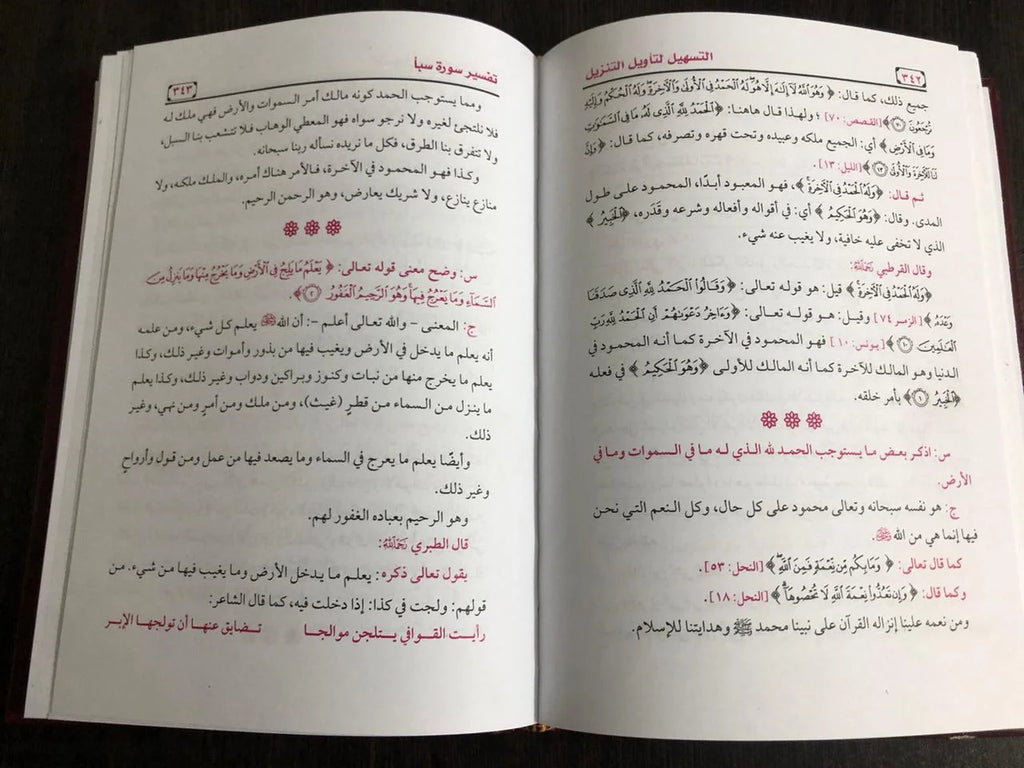 ٣٤٢
التسهيل لتأويل التنزيل
جميع ذلك، كما قال: ﴿ وَهُوَ ٱللَّهُ لَآ إِلَٰهَ إِلَّا هُوَ ۖ لَهُ ٱلْحَمْدُ فِى ٱلْأُولَىٰ وَٱلْءَاخِرَةِ ۖ وَلَهُ ٱلْحُكْمُ وَإِلَيْهِ
تُرْجَعُونَ ﴾ [القصص: ٧٠] ؛ ولهذا قال هاهنا: ﴿ ٱلْحَمْدُ لِلَّهِ ٱلَّذِى لَهُۥ مَا فِى ٱلسَّمَٰوَٰتِ
وَمَا فِى ٱلْأَرْضِ ﴾ أي: الجميع ملكه وعبيده وتحت قهره وتصرفه، كما قال: ﴿ وَإِنَّ
لَنَا لَلْءَاخِرَةَ وَٱلْأُولَىٰ ۝١٣ ﴾ [الليل: ١٣].
ثم قال: ﴿ وَلَهُ ٱلْحَمْدُ فِى ٱلْءَاخِرَةِ ﴾، فهو المعبود أبدًا، المحمود على طول
المدى. وقال: ﴿ وَهُوَ ٱلْحَكِيمُ ﴾ أي: في أقواله وأفعاله وشرعه وقدَره، ﴿ ٱلْخَبِيرُ ﴾
الذي لا تخفى عليه خافية، ولا يغيب عنه شيء.
وقال القرطبي رَحِمَهُ ٱللَّهُ:
﴿ وَلَهُ ٱلْحَمْدُ فِى ٱلْءَاخِرَةِ ﴾ قيل: هو قوله تعالى: ﴿ وَقَالُوا۟ ٱلْحَمْدُ لِلَّهِ ٱلَّذِى صَدَقَنَا
وَعْدَهُۥ ﴾ [الزمر ٧٤] وقيل: هو قوله تعالى: ﴿ وَءَاخِرُ دَعْوَىٰهُمْ أَنِ ٱلْحَمْدُ لِلَّهِ رَبِّ
ٱلْعَٰلَمِينَ ۝١٠ ﴾ [يونس: ١٠] فهو المحمود في الآخرة كما أنه المحمود في
الدنيا وهو المالك للآخرة كما أنه المالك للأولى ﴿ وَهُوَ ٱلْحَكِيمُ ﴾ في فعله
﴿ ٱلْخَبِيرُ ۝١ ﴾ بأمر خلقه.
س: اذكر بعض ما يستوجب الحمد لله الذي له ما في السموات وما في
الأرض.
ج: هو نفسه سبحانه وتعالى محمود على كل حال، وكل النعم التي نحن
فيها إنما هي من الله ﷻ.
كما قال تعالى: ﴿ وَمَا بِكُم مِّن نِّعْمَةٍ فَمِنَ ٱللَّهِ ﴾ [النحل: ٥٣].
وكما قال: ﴿ وَإِن تَعُدُّوا۟ نِعْمَةَ ٱللَّهِ لَا تُحْصُوهَآ ﴾ [النحل: ١٨].
ومن نعمه علينا إنزاله القرآن على نبينا محمد ﷺ وهدايتنا للإسلام.
تفسير سورة سبأ
٣٤٣
ومما يستوجب الحمد كونه مالك أمر السموات والأرض فهي ملك له
فلا نلتجئ لغيره ولا نرجو سواه فهو المعطي الوهاب فلا تتشعب بنا السبل،
ولا تتفرق بنا الطرق، فكل ما نريده نسأله ربنا سبحانه.
وكذا فهو المحمود في الآخرة، فالأمر هناك أمره، والملك ملكه، ولا
منازع ينازع، ولا شريك يعارض، وهو الرحمن الرحيم.
س: وضح معنى قوله تعالى: ﴿ يَعْلَمُ مَا يَلِجُ فِى ٱلْأَرْضِ وَمَا يَخْرُجُ مِنْهَا وَمَا يَنزِلُ مِنَ
ٱلسَّمَآءِ وَمَا يَعْرُجُ فِيهَا ۚ وَهُوَ ٱلرَّحِيمُ ٱلْغَفُورُ ۝٢ ﴾.
ج: المعنى – والله تعالى أعلم –: أن الله ﷻ يعلم كل شيء، ومن علمه
أنه يعلم ما يدخل في الأرض ويغيب فيها من بذور وأموات وغير ذلك، وكذا
يعلم ما يخرج منها من نبات وكنوز وبراكين ودواب وغير ذلك، وكذا يعلم
ما ينزل من السماء من قطرٍ (غيث)، ومن ملك ومن أمرٍ ومن نهي، وغير
ذلك.
وأيضًا يعلم ما يعرج في السماء وما يصعد فيها من عمل ومن قول وأرواحٍ
وغير ذلك.
وهو الرحيم بعباده الغفور لهم.
قال الطبري رَحِمَهُ ٱللَّهُ:
يقول تعالى ذكره: يعلم ما يدخل الأرض وما يغيب فيها من شيء. من
قولهم: ولجت في كذا: إذا دخلت فيه، كما قال الشاعر:
رأيت القوافي يتلجن موالجا تضايق عنها أن تولجها الإبر